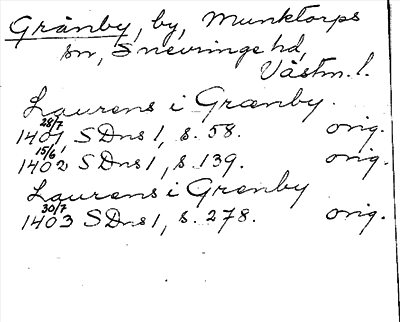 Gränby, by, Munktorps
sn, Snevringe hd,
Västm. l.
Laurens i Grænby.
28/7
1401 SDns 1, s. 58. orig.
15/6
1402 SDns 1, s. 139. orig.
Laurens i Grenby
30/7
1403 SDns 1, s. 278. orig.